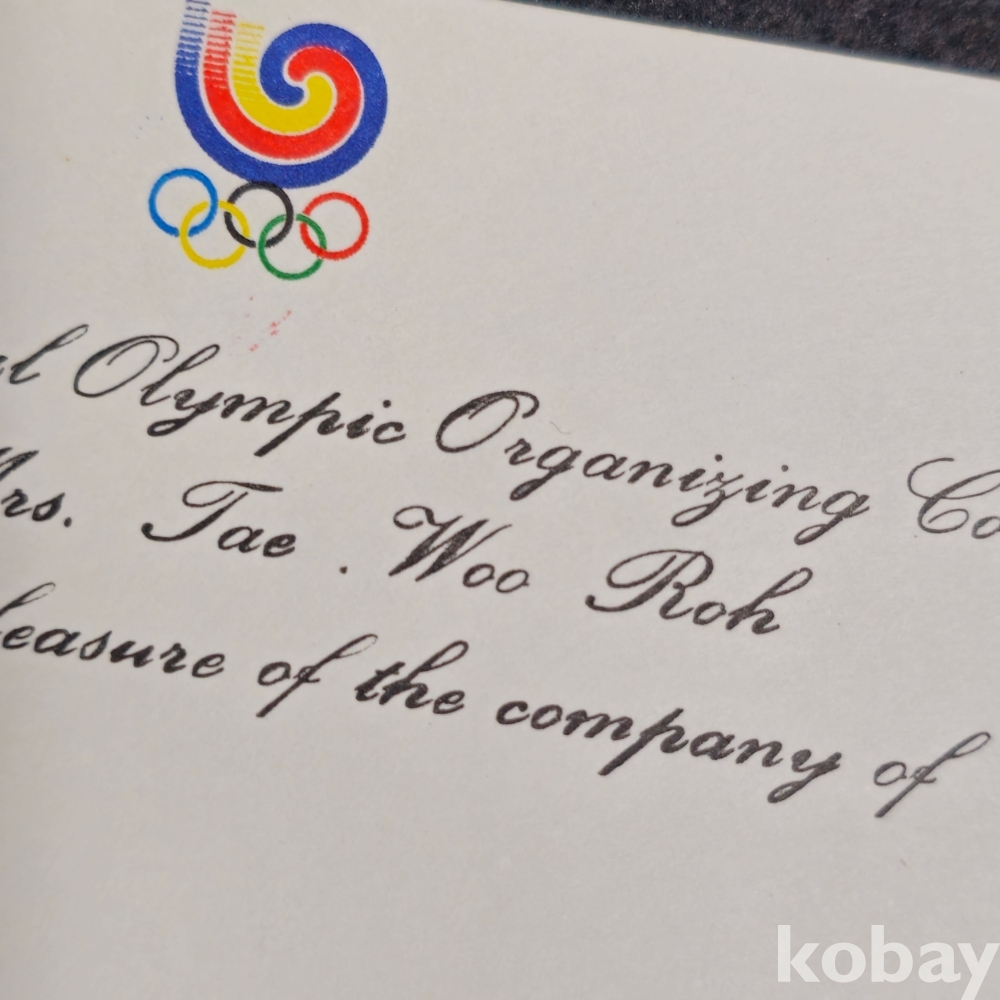 l Olympic Organizing Co
Mrs. Tae . Woo Roh
leasure of the company of
kobay